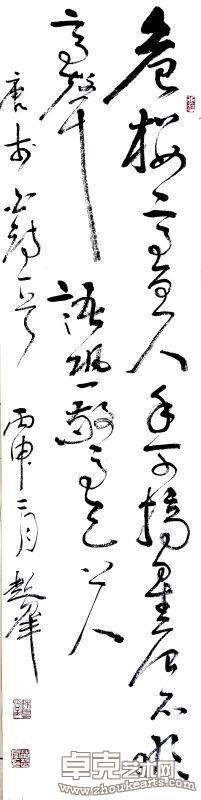 危楼高百尺手可摘星辰不敢
高聲語恐驚天上人
唐李白詩一首丙申二月
卓克艺术网
www.zhoukearts.com